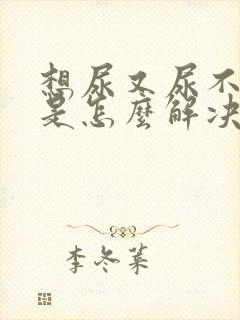 想尿又尿不
是怎麽解决
李冬菜